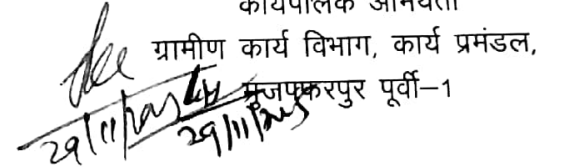 कार्यपालक अभियंता
ग्रामीण कार्य विभाग, कार्य प्रमंडल,
मुजफ्फरपुर पूर्वी–1
29/11/2025
29/11/2025